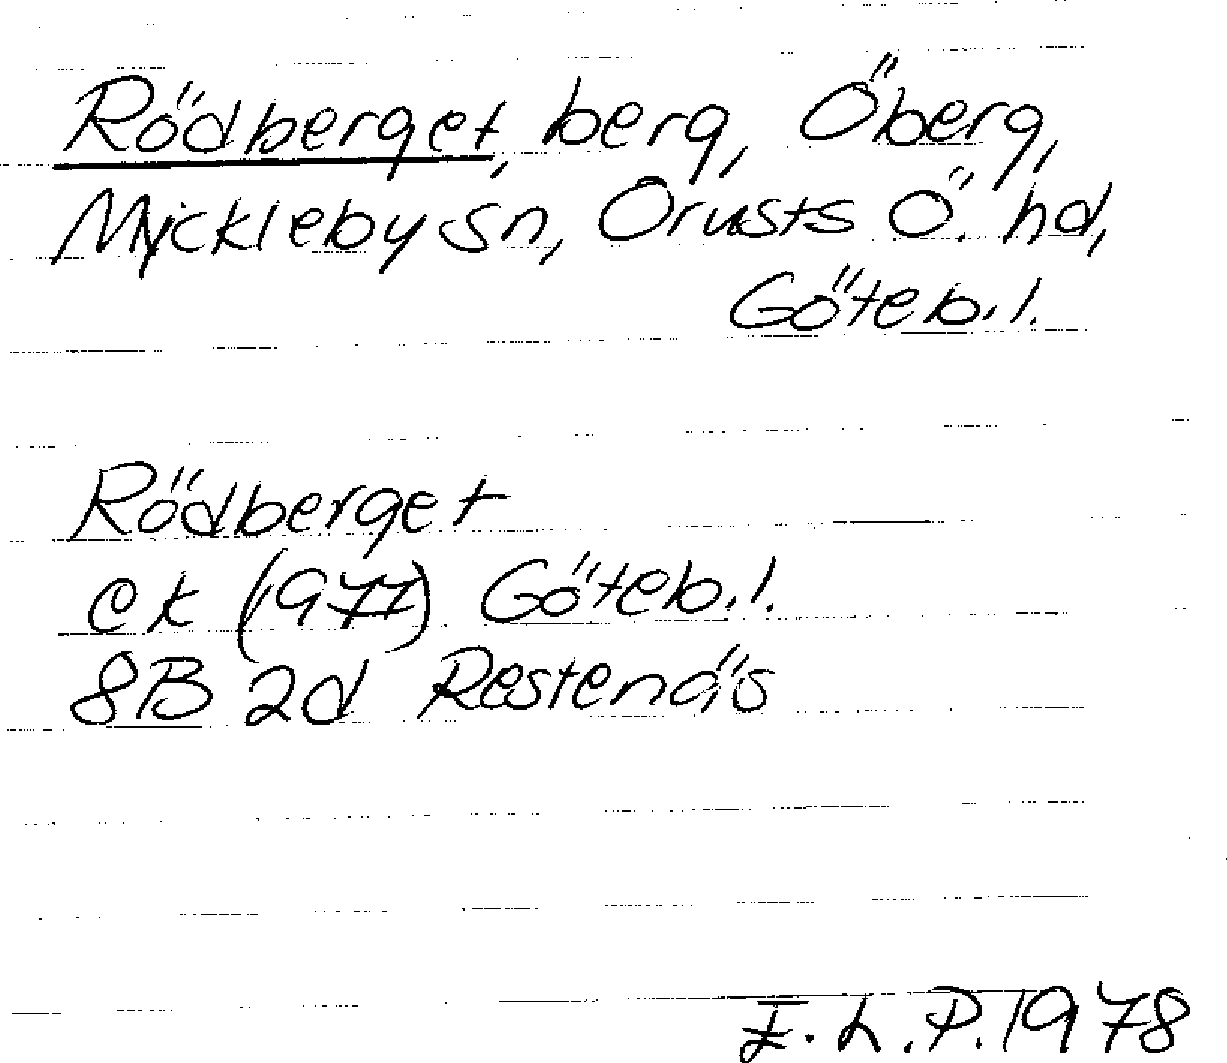 Rödberget, berg, Öberg,
Myckleby sn, Orusts Ö. hd,
Göteb. l.
Rödberget
ek (1977) Göteb. l.
8B 2d Restenäs
I. L. P. 1978